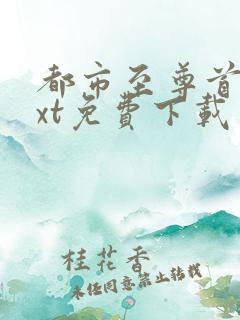 都市至尊首
xt免费下载
桂花香
未经同意禁止转载